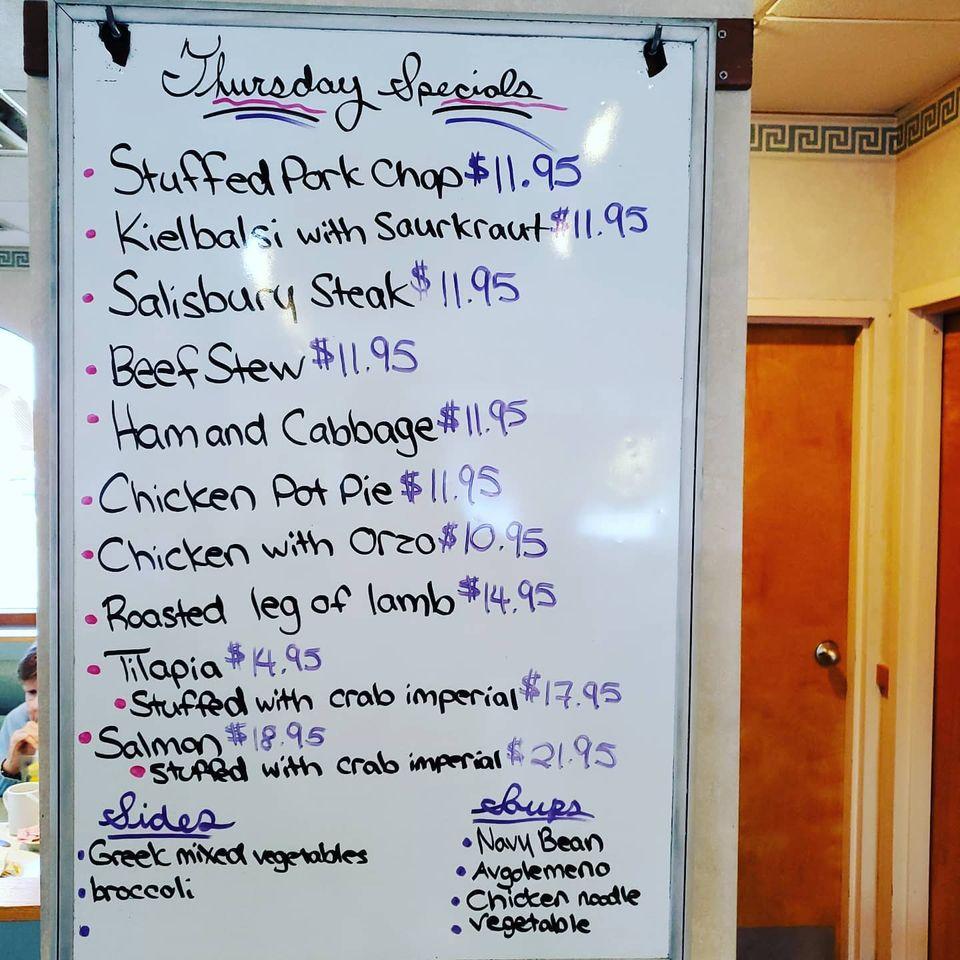 Thursday Specials
• Stuffed Pork Chop $11.95
• Kielbalsi with Saurkraut $11.95
• Salisbury Steak $11.95
• Beef Stew $11.95
• Ham and Cabbage $11.95
• Chicken Pot Pie $11.95
• Chicken with Orzo $10.95
• Roasted leg of lamb $14.95
• Tilapia $14.95
• Stuffed with crab imperial $17.95
• Salmon $18.95
• Stuffed with crab imperial $21.95
Sides
• Greek mixed vegetables
• broccoli
•
Soups
• Navy Bean
• Avgolemeno
• Chicken noodle
• vegetable